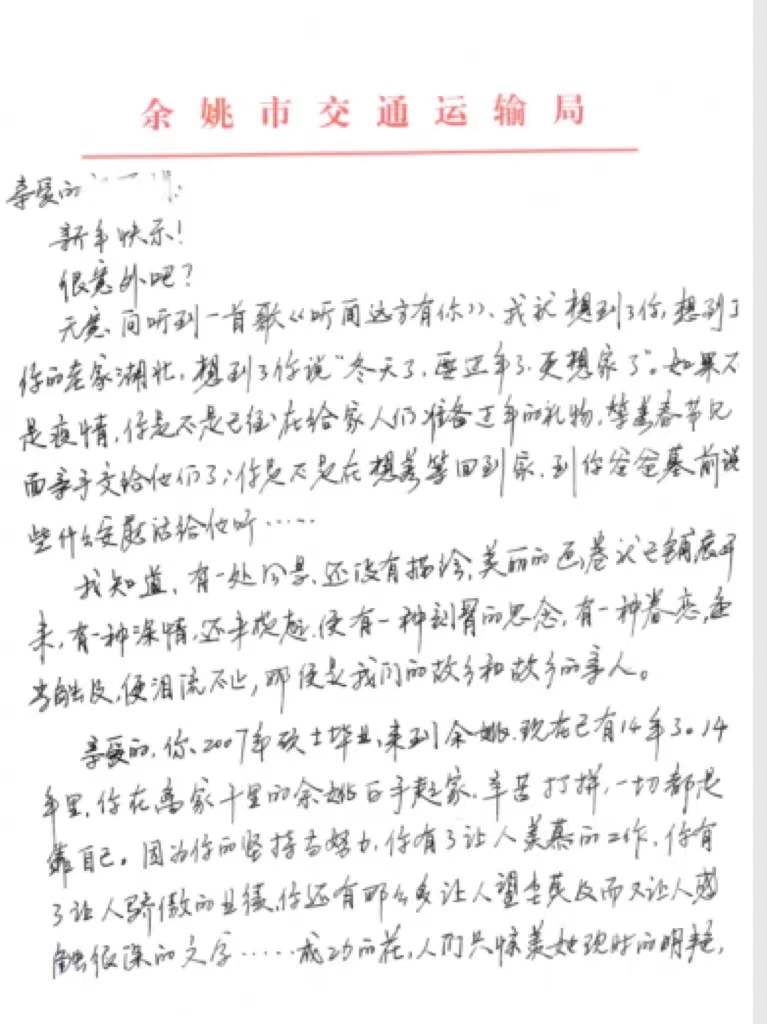 余姚市交通运输局
亲爱的
新年快乐!
很意外吧?
无意间听到一首歌《听闻远方有你》、我就想到了你,想到了
你的老家湖北,想到了你说“冬天了,要过年了,更想家了”。如果不
是疫情,你是不是已经在给家人们准备过年的礼物,等着春节见
面亲手交给他们了;你是不是在想着等回到家、到你爸爸墓前说
些什么安慰话给他听……
我知道,有一处风景、还没有描绘,美丽的画卷就已铺展开
来,有一种深情,还未提起,便有一种刻骨的思念,有一种眷恋,每
当触及,便泪流不止,那便是我们的故乡和故乡的亲人。
亲爱的,你2007年硕士毕业来到余姚,现在已有14年了。14
年里,你在离家千里的余姚白手起家、辛苦打拼,一切都是
靠自己。因为你的坚持与努力,你有了让人羡慕的工作、你有
了让人骄傲的业绩,你还有那么多让人望尘莫及而又让人感
触很深的文字……成功的花,人们只惊羡她现时的明艳,